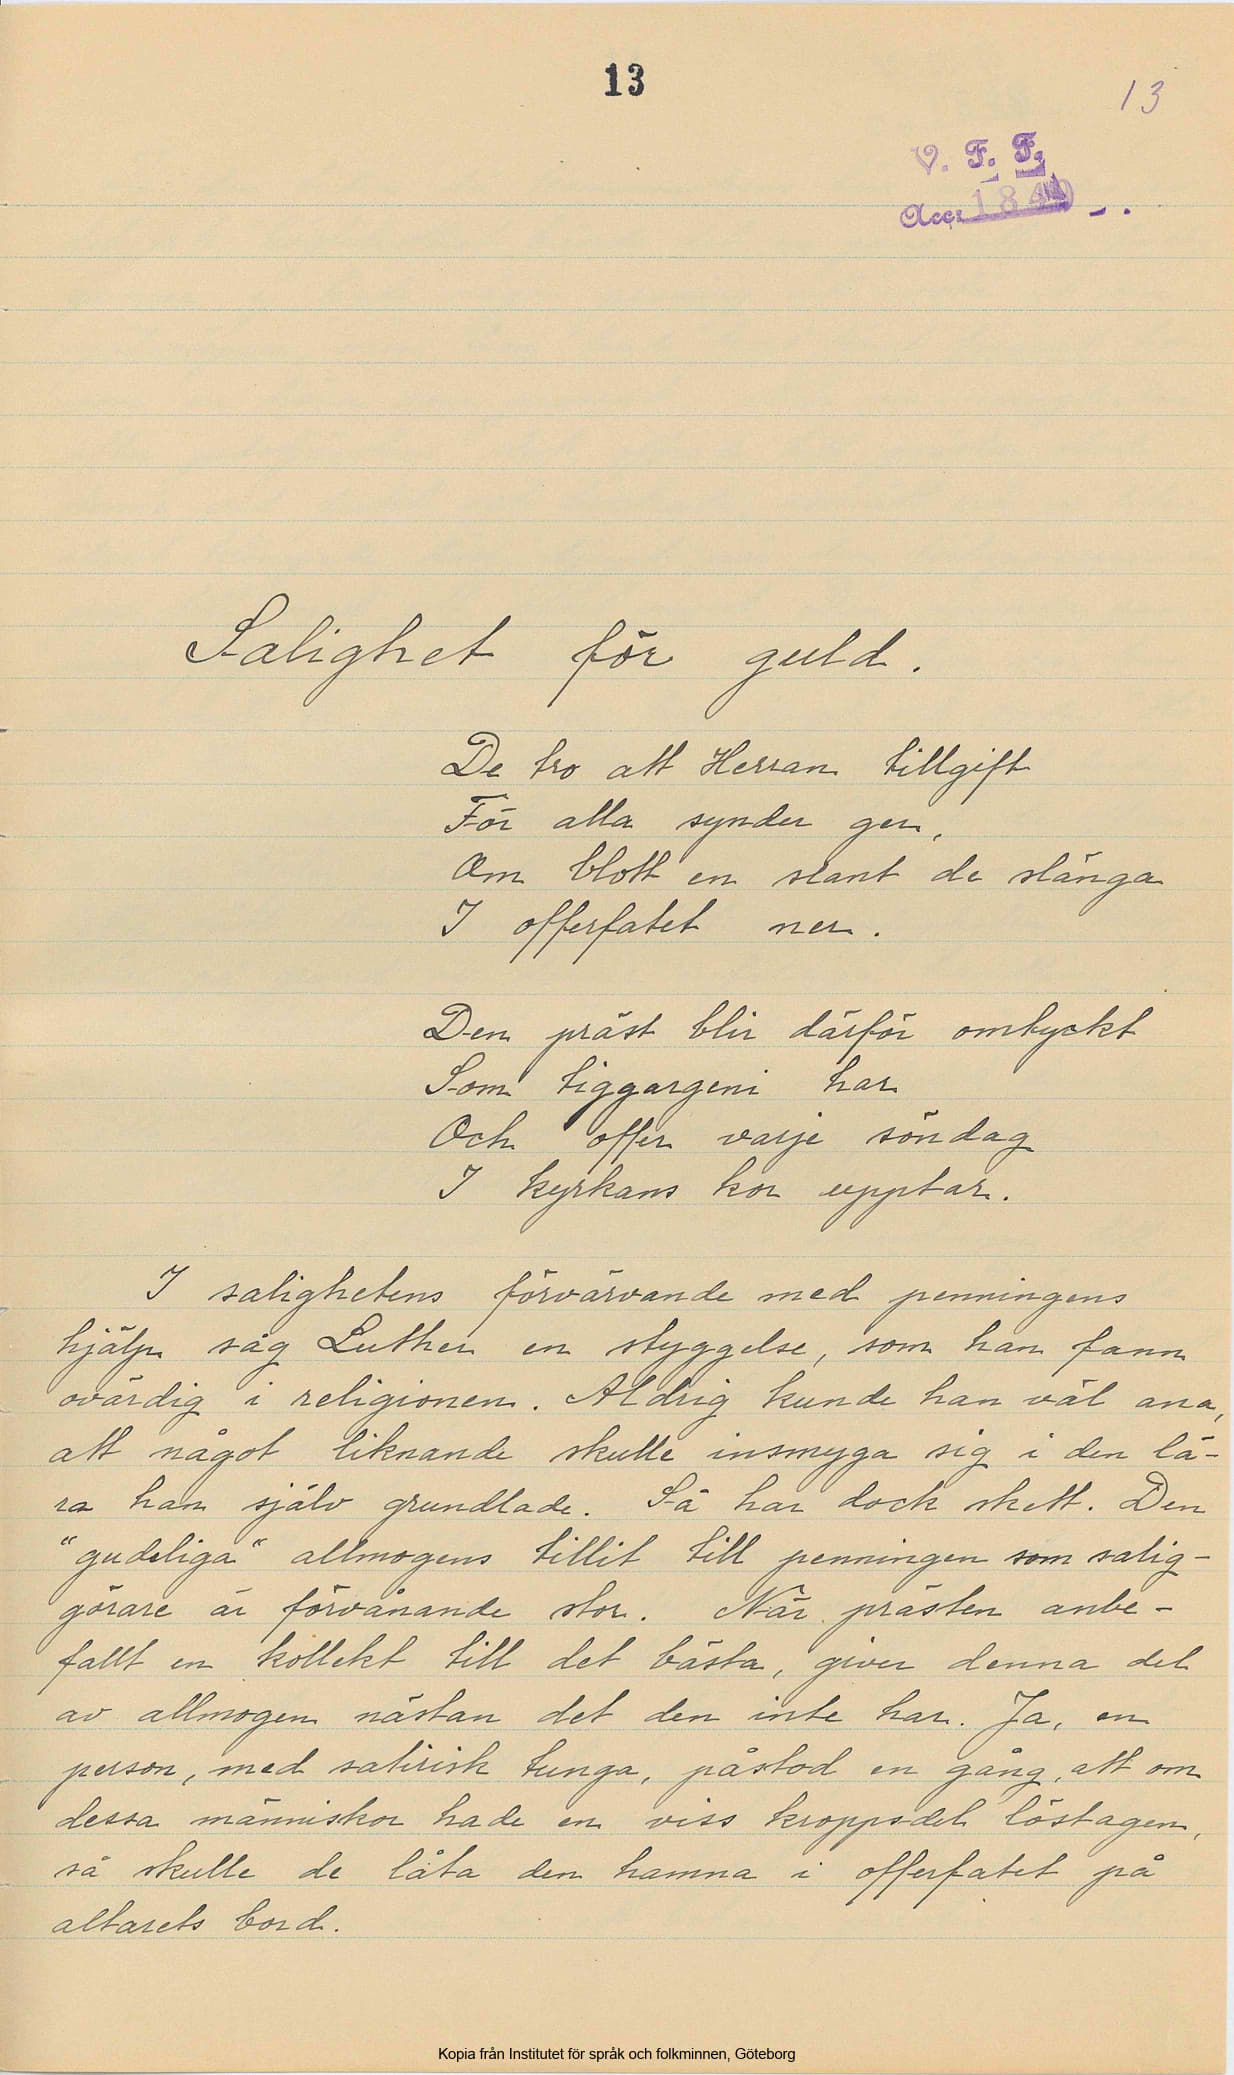 13
13
V. F. F.
Acc. 1840
Salighet för guld.
De tro att Herran tillgift
För alla synder ger,
Om blott en slant de slänga
I offerfatet ner.
Den präst blir därför omtyckt
Som tiggargeni har
Och offer varje söndag
I kyrkans kor upptar.
I salighetens förvärvande med penningens
hjälp såg Luther en styggelse, som han fann
ovärdig i religionen. Aldrig kunde han väl ana,
att något liknande skulle insmyga sig i den lä-
ra han själv grundlade. Så har dock skett. Den
"gudeliga" allmogens tillit till penningen som salig-
görare är förvånande stor. När prästen anbe-
fallt en kollekt till det bästa, giver denna del
av allmogen nästan det den inte har. Ja, en
person, med satirisk tunga, påstod en gång, att om
dessa människor hade en viss kroppsdel löstagen,
så skulle de låta den hamna i offerfatet på
altarets bord.
Kopia från Institutet för språk och folkminnen, Göteborg